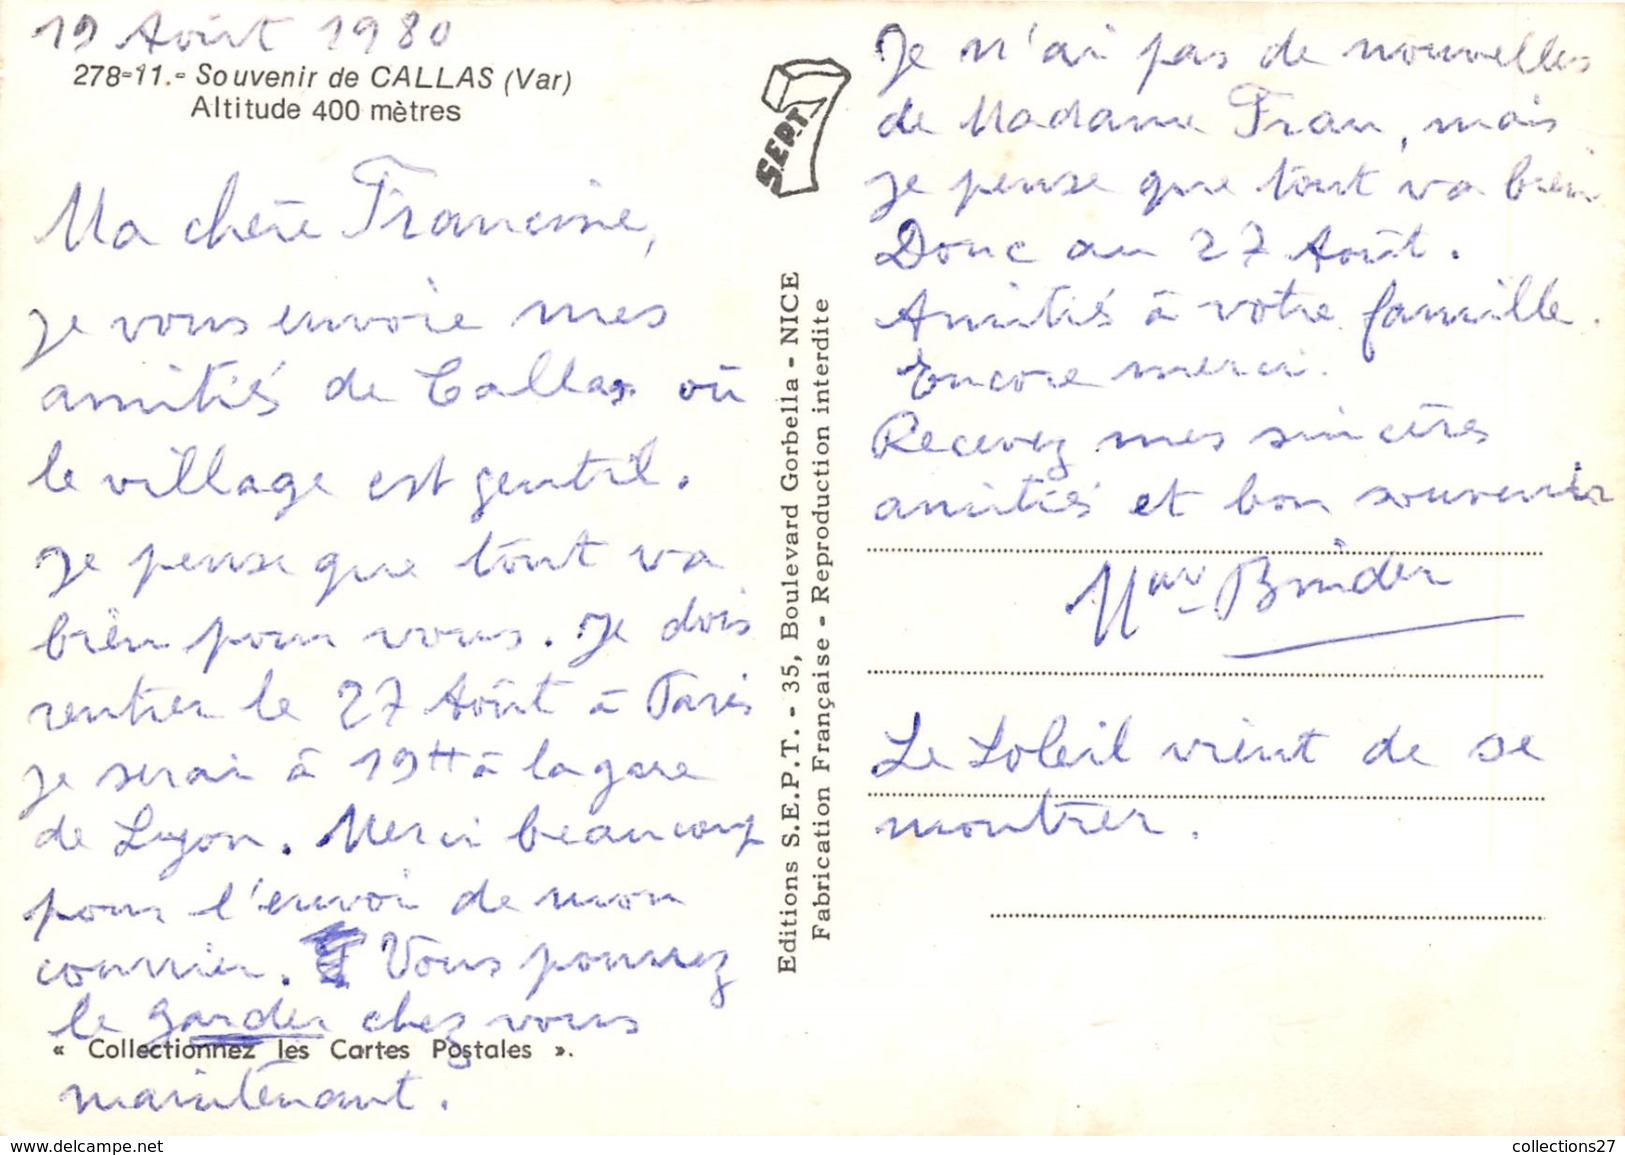 19 Août 1980
278-11.- Souvenir de CALLAS (Var)
Altitude 400 mètres
Ma chère Francine,
je vous envoie mes
amitiés de Callas où
le village est gentil.
Je pense que tout va
bien pour vous. Je dois
rentrer le 27 Août à Paris
je serai à 19H à la gare
de Lyon. Merci beaucoup
pour l'envoi de mon
courrier. Vous pourrez
le garder chez vous
« Collectionnez les Cartes Postales ».
maintenant.
SEPT
Editions S.E.P.T. - 35, Boulevard Gorbella - NICE
Fabrication Française - Reproduction interdite
Je n'ai pas de nouvelles
de Madame Fran, mais
je pense que tout va bien
Donc au 27 Août.
Amitiés à votre famille.
Encore merci.
Recevez mes sincères
amitiés et bon souvenir
Binder
Le Soleil vient de se
montrer.
delcampe.net
collections27